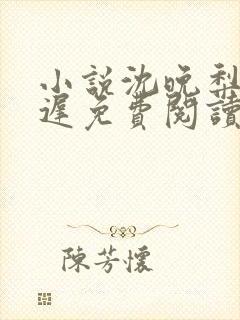 小說沈晚梨
遲免費閱讀
陳芳懷